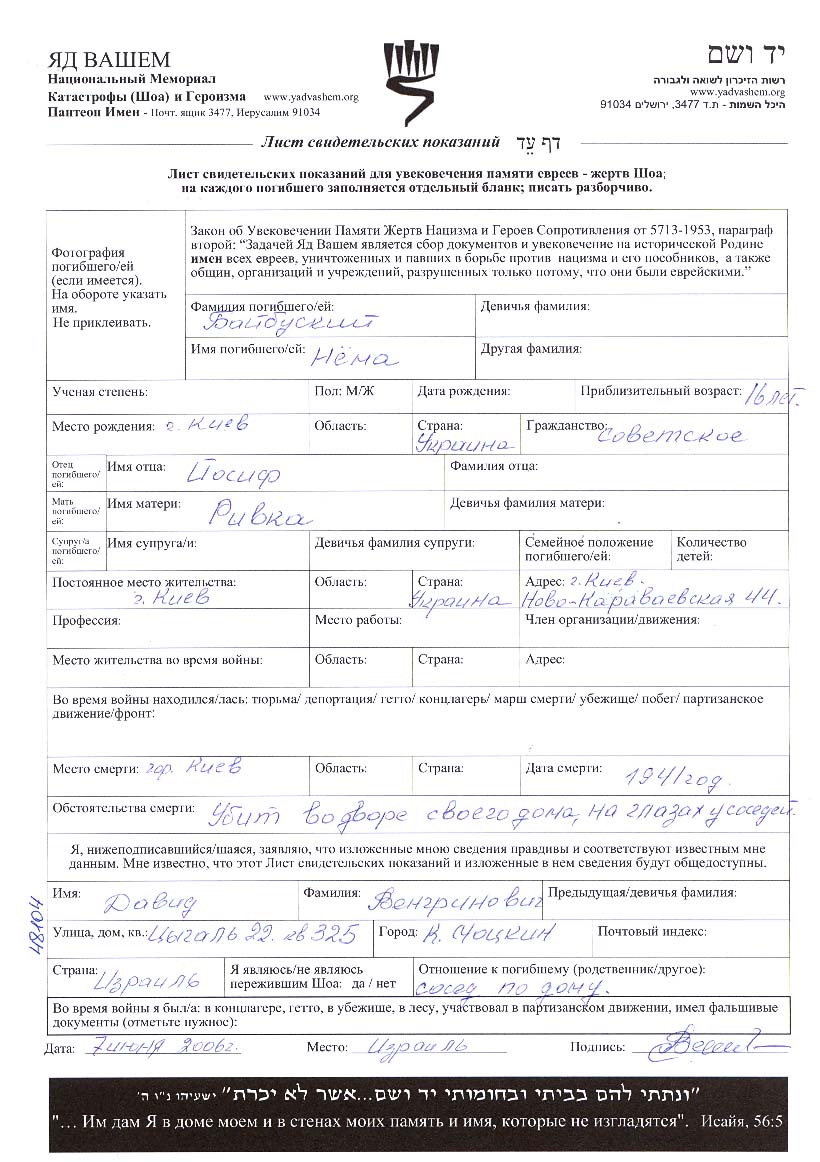 ЯД ВАШЕМ
Национальный Мемориал
Катастрофы (Шоа) и Героизма www.yadvashem.org
Пантеон Имен - Почт. ящик 3477, Иерусалим 91034
יד ושם
רשות הזיכרון לשואה ולגבורה
www.yadvashem.org
היכל השמות - ת.ד 3477, ירושלים 91034
Лист свидетельских показаний דף עֵד
Лист свидетельских показаний для увековечения памяти евреев - жертв Шоа;
на каждого погибшего заполняется отдельный бланк; писать разборчиво.
Фотография
погибшего/ей
(если имеется).
На обороте указать
имя.
Не приклеивать.
Закон об Увековечении Памяти Жертв Нацизма и Героев Сопротивления от 5713-1953, параграф
второй: “Задачей Яд Вашем является сбор документов и увековечение на исторической Родине
имен всех евреев, уничтоженных и павших в борьбе против нацизма и его пособников, а также
общин, организаций и учреждений, разрушенных только потому, что они были еврейскими.”
Фамилия погибшего/ей: Девичья фамилия:
Байбуский
Имя погибшего/ей: Нёма Другая фамилия:
Ученая степень: Пол: М/Ж Дата рождения: Приблизительный возраст: 16 лет.
Место рождения: г. Киев Область: Страна: Украина Гражданство: советское
Отец погибшего/ей: Имя отца: Иосиф Фамилия отца:
Мать погибшего/ей: Имя матери: Ривка Девичья фамилия матери:
Супруг/а погибшего/ей: Имя супруга/и: Девичья фамилия супруги: Семейное положение погибшего/ей: Количество детей:
Постоянное место жительства: г. Киев Область: Страна: Украина Адрес: г. Киев - Ново-Караваевская 44.
Профессия: Место работы: Член организации/движения:
Место жительства во время войны: Область: Страна: Адрес:
Во время войны находился/лась: тюрьма/ депортация/ гетто/ концлагерь/ марш смерти/ убежище/ побег/ партизанское
движение/фронт:
Место смерти: гор. Киев Область: Страна: Дата смерти: 1941 год.
Обстоятельства смерти: Убит во дворе своего дома, на глазах у соседей.
Я, нижеподписавшийся/шаяся, заявляю, что изложенные мною сведения правдивы и соответствуют известным мне
данным. Мне известно, что этот Лист свидетельских показаний и изложенные в нем сведения будут общедоступны.
Имя: Давид Фамилия: Венгринович Предыдущая/девичья фамилия:
48104
Улица, дом, кв.: Цыгаль 22. кв 325 Город: К. Моцкин Почтовый индекс:
Страна: Израиль Я являюсь/не являюсь пережившим Шоа: да / нет Отношение к погибшему (родственник/другое): сосед по дому.
Во время войны я был/а: в концлагере, гетто, в убежище, в лесу, участвовал в партизанском движении, имел фальшивые
документы (отметьте нужное):
Дата: 7 июня 2006г. Место: Израиль Подпись:
"ונתתי להם בביתי ובחומותי יד ושם...אשר לא יכרת" ישעיהו נ"ו ה'
"... Им дам Я в доме моем и в стенах моих память и имя, которые не изгладятся". Исайя, 56:5